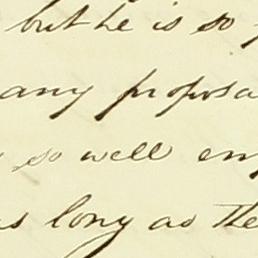 but he is so
any proposa
so well em
as long as the